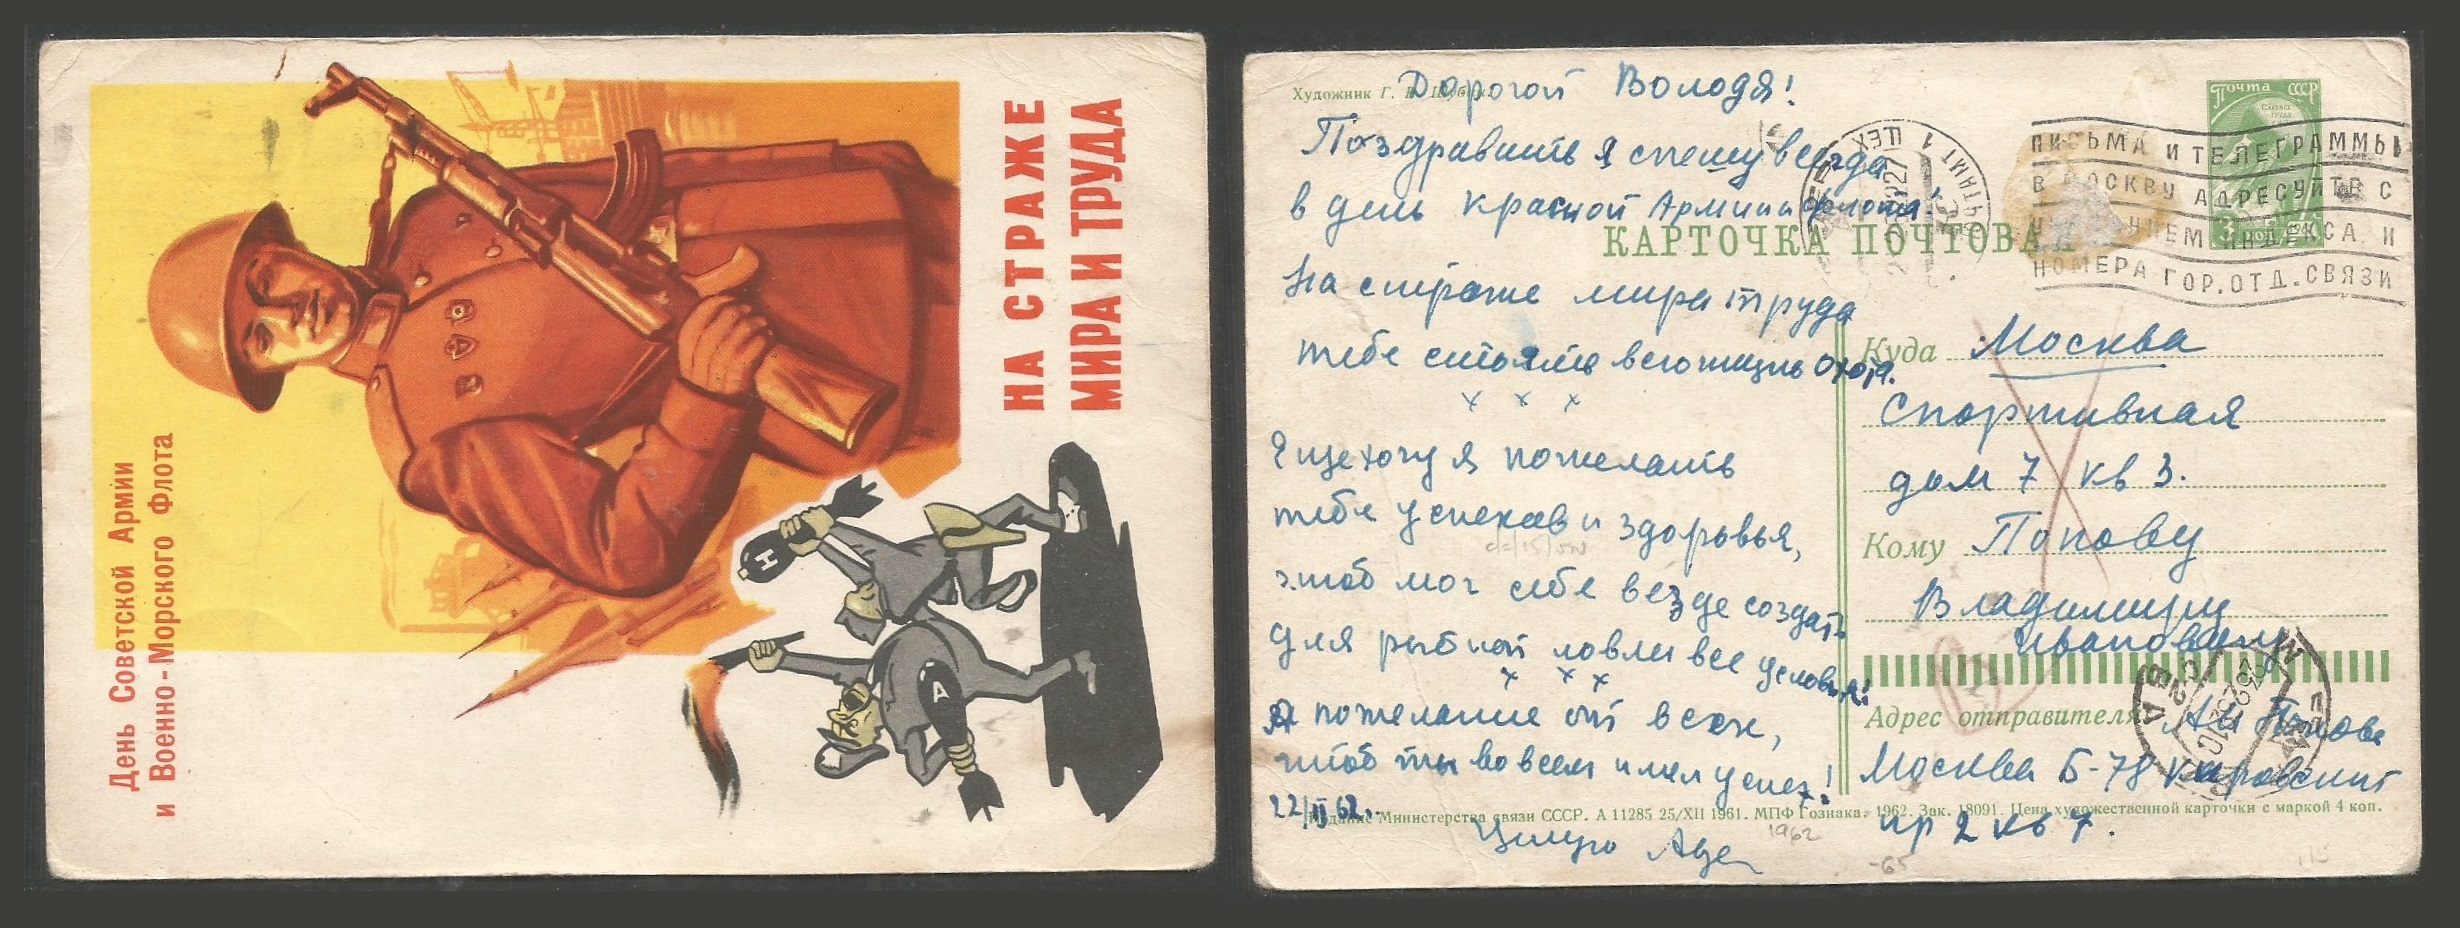 День Советской Армии
и Военно-Морского Флота
НА СТРАЖЕ
МИРА И ТРУДА
Н
А
Художник Г.
Дорогой Володя!
Поздравить я спешу всегда
в день красной Армии и флота.
На страже мира и труда
тебе стоять всю жизнь охота.
х х х
Еще хочу я пожелать
тебе успехов и здоровья,
чтоб мог себе везде создать
для рыбной ловли все условья!
х х х
А пожелание от всех,
чтоб ты во всем имел успех!
22/II 62г.
Целую
ПОЧТА СССР
3 КОП
ПИСЬМА И ТЕЛЕГРАММЫ
В МОСКВУ АДРЕСУЙТЕ С
ИНДЕКСА И
НОМЕРА ГОР.ОТД.СВЯЗИ
ПОЧТАМТ 1
ЦЕХ
КАРТОЧКА ПОЧТОВАЯ
Куда Москва
Спортивная
дом 7 кв 3.
Кому Попову
Владимиру
Ивановичу
Адрес отправителя: Попова
Москва Б-78 Кировский
пр 2 кв 7.
МОСКВА
Издание Министерства связи СССР. А 11285 25/XII 1961. МПФ Гознака. 1962. Зак. 18091. Цена художественной карточки с маркой 4 коп.
1962
-65